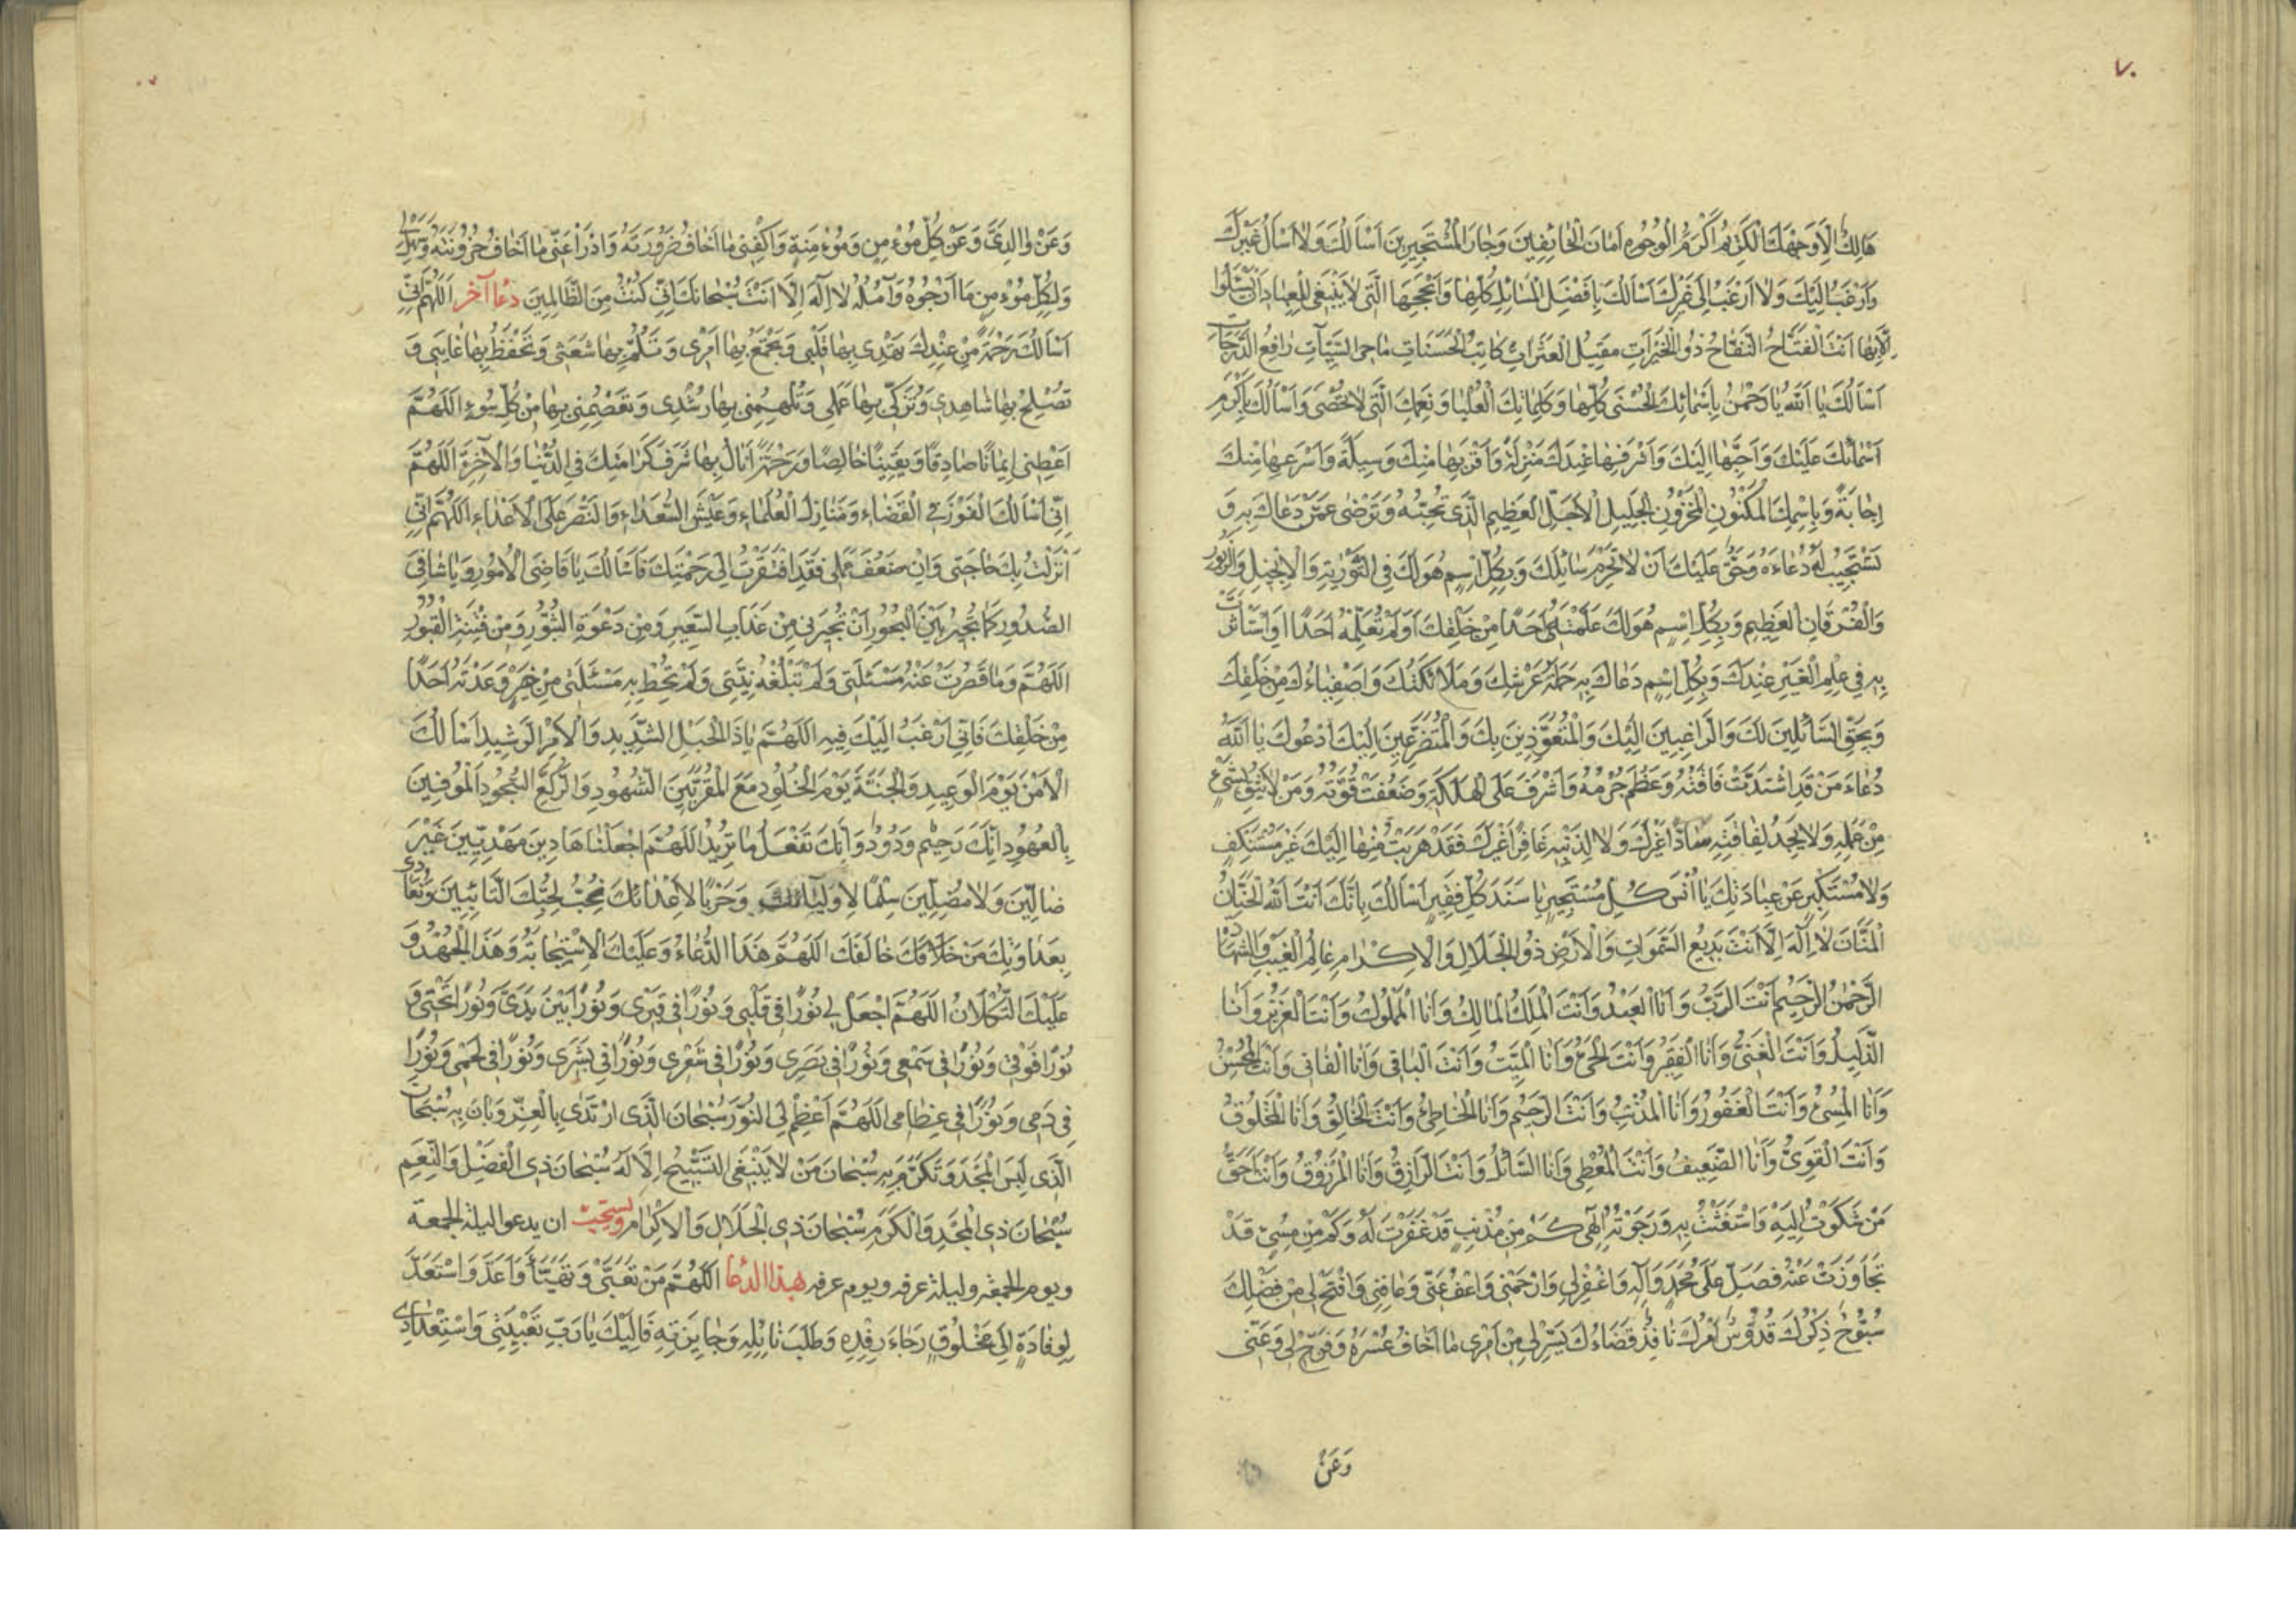 ٧٠
هَالِكٌ اِلاّٰ وَجْهَكَ الْكَرِيْمُ اَكْرَمُ الْوُجُوهِ اَمٰانَ الْخٰائِفِينَ وَجٰارَ الْمُسْتَجِيرِينَ اَسْاَلُكَ وَلاٰ اَسْاَلُ غَيْرَكَ
وَاَرْغَبُ اِلَيْكَ وَلاٰ اَرْغَبُ اِلىٰ غَيْرِكَ اَسْاَلُكَ بِاَفْضَلِ الْمَسٰائِلِ كُلِّهٰا وَاَنْجَحِهَا الَّتِى لاٰ يَنْبَغِى لِلْعِبٰادِ اَنْ يَسْئَلُوا
اِلاّٰ بِهٰا اَنْتَ الْفَتّٰاحُ النَّفّٰاحُ ذُو الْخَيْرٰاتِ مقيلُ الْعَثَرٰاتِ كٰاتِبُ الْحَسَنٰاتِ مٰاحِى السَّيِّئٰاتِ رٰافِعُ الدَّرَجٰاتِ
اَسْاَلُكَ يٰا اَللّٰهُ يٰا رَحْمٰنُ بِاَسْمٰائِكَ الْحُسْنىٰ كُلِّهٰا وَكَلِمٰاتِكَ الْعُلْيٰا وَنِعَمِكَ الَّتِى لاٰ تُحْصىٰ وَاَسْاَلُكَ بِاَكْرَمِ
اَسْمٰائِكَ عَلَيْكَ وَاَحَبِّهٰا اِلَيْكَ وَاَشْرَفِهٰا عِنْدَكَ مَنْزِلَةً وَاَقْرَبِهٰا مِنْكَ وَسِيلَةً وَاَسْرَعِهٰا مِنْكَ
اِجٰابَةً وَبِاسْمِكَ الْمَكْنُونِ الْمَخْزُونِ الْجَلِيلِ الْاَجَلِّ الْعَظِيمِ الَّذِى تُحِبُّهُ وَتَرْضىٰ عَمَّنْ دَعٰاكَ بِهِ وَ
تَسْتَجِيبُ لَهُ دُعٰاءَهُ وَحَقٌّ عَلَيْكَ اَنْ لاٰ تَحْرِمَ سٰائِلَكَ وَبِكُلِّ اسْمٍ هُوَ لَكَ فِى التَّوْرٰيةِ وَالْاِنْجِيلِ وَالزَّبُورِ
وَالْفُرْقٰانِ الْعَظِيمِ وَبِكُلِّ اسْمٍ هُوَ لَكَ عَلَّمْتَهُ اَحَدًا مِنْ خَلْقِكَ اَوْ لَمْ تُعَلِّمْهُ اَحَدًا اَوِ اسْتَأْثَرْتَ
بِهِ فِى عِلْمِ الْغَيْبِ عِنْدَكَ وَبِكُلِّ اسْمٍ دَعٰاكَ بِهِ حَمَلَةُ عَرْشِكَ وَمَلاٰئِكَتُكَ وَاَصْفِيٰاءُكَ مِنْ خَلْقِكَ
وَبِحَقِّ السّٰائِلِينَ لَكَ وَالرّٰاغِبِينَ اِلَيْكَ وَالْمُتَعَوِّذِينَ بِكَ وَالْمُتَضَرِّعِينَ اِلَيْكَ اَدْعُوكَ يٰا اَللّٰهُ
دُعٰاءَ مَنْ قَدِ اشْتَدَّتْ فٰاقَتُهُ وَعَظُمَ جُرْمُهُ وَاَشْرَفَ عَلَى الْهَلَكَةِ وَضَعُفَتْ قُوَّتُهُ وَمَنْ لاٰ يَثِقُ بِشَىْءٍ
مِنْ عَمَلِهِ وَلاٰ يَجِدُ لِفٰاقَتِهِ سٰادًّا غَيْرَكَ وَلاٰ لِذَنْبِهِ غٰافِرًا غَيْرَكَ فَقَدْ هَرَبْتُ مِنْهٰا اِلَيْكَ غَيْرَ مُسْتَنْكِفٍ
وَلاٰ مُسْتَكْبِرٍ عَنْ عِبٰادَتِكَ يٰا اُنْسَ كُلِّ مُسْتَجِيرٍ يٰا سَنَدَ كُلِّ فَقِيرٍ اَسْاَلُكَ بِاَنَّكَ اَنْتَ اللّٰهُ الْحَنّٰانُ
الْمَنّٰانُ لاٰ اِلٰهَ اِلاّٰ اَنْتَ بَدِيعُ السَّمٰوٰاتِ وَالْاَرْضِ ذُو الْجَلاٰلِ وَالْاِكْرٰامِ عٰالِمُ الْغَيْبِ وَالشَّهٰادَةِ
الرَّحْمٰنُ الرَّحِيمُ اَنْتَ الرَّبُّ وَاَنَا الْعَبْدُ وَاَنْتَ الْمَلِكُ الْمٰالِكُ وَاَنَا الْمَمْلُوكُ وَاَنْتَ الْعَزِيزُ وَاَنَا
الذَّلِيلُ وَاَنْتَ الْغَنِىُّ وَاَنَا الْفَقِيرُ وَاَنْتَ الْحَىُّ وَاَنَا الْمَيِّتُ وَاَنْتَ الْبٰاقِى وَاَنَا الْفٰانِى وَاَنْتَ الْمُحْسِنُ
وَاَنَا الْمُسِىءُ وَاَنْتَ الْغَفُورُ وَاَنَا الْمُذْنِبُ وَاَنْتَ الرَّحِيمُ وَاَنَا الْخٰاطِئُ وَاَنْتَ الْخٰالِقُ وَاَنَا الْمَخْلُوقُ
وَاَنْتَ الْقَوِىُّ وَاَنَا الضَّعِيفُ وَاَنْتَ الْمُعْطِى وَاَنَا السّٰائِلُ وَاَنْتَ الرّٰازِقُ وَاَنَا الْمَرْزُوقُ وَاَنْتَ اَحَقُّ
مَنْ شَكَوْتُ اِلَيْهِ وَاسْتَغَثْتُ بِهِ وَرَجَوْتُهُ اِلٰهِى كَمْ مِنْ مُذْنِبٍ قَدْ غَفَرْتَ لَهُ وَكَمْ مِنْ مُسِىءٍ قَدْ
تَجٰاوَزْتَ عَنْهُ فَصَلِّ عَلىٰ مُحَمَّدٍ وَاٰلِهِ وَاغْفِرْ لِى وَارْحَمْنِى وَاعْفُ عَنِّى وَعٰافِنِى وَافْتَحْ لِى مِنْ فَضْلِكَ
سُبُّوحٌ ذِكْرُكَ قُدُّوسٌ اَمْرُكَ نٰافِذٌ قَضٰاءُكَ يَسِّرْ لِى مِنْ اَمْرِى مٰا اَخٰافُ عُسْرَهُ وَفَرِّجْ لِى وَعَنِّى
وَعَنْ
وَعَنْ وٰالِدَىَّ وَعَنْ كُلِّ مُؤْمِنٍ وَمُؤْمِنَةٍ وَاكْفِنِى مٰا اَخٰافُ ضَرُورَتَهُ وَادْرَأْ عَنِّى مٰا اَخٰافُ حُزُونَتَهُ وَسَهِّلْ لِى
وَلِكُلِّ مُؤْمِنٍ مٰا اَرْجُوهُ وَاٰمُلُهُ لاٰ اِلٰهَ اِلاّٰ اَنْتَ سُبْحٰانَكَ اِنِّى كُنْتُ مِنَ الظّٰالِمِينَ دُعٰا آخر اَللّٰهُمَّ اِنِّى
اَسْاَلُكَ رَحْمَةً مِنْ عِنْدِكَ تَهْدِى بِهٰا قَلْبِى وَتَجْمَعُ بِهٰا اَمْرِى وَتَلُمُّ بِهٰا شَعَثِى وَتَحْفَظُ بِهٰا غٰائِبِى وَ
تُصْلِحُ بِهٰا شٰاهِدِى وَتُزَكِّى بِهٰا عَمَلِى وَتُلْهِمُنِى بِهٰا رُشْدِى وَتَعْصِمُنِى بِهٰا مِنْ كُلِّ سُوءٍ اَللّٰهُمَّ
اَعْطِنِى اِيمٰانًا صٰادِقًا وَيَقِينًا خٰالِصًا وَرَحْمَةً اَنٰالُ بِهٰا شَرَفَ كَرٰامَتِكَ فِى الدُّنْيٰا وَالْاٰخِرَةِ اَللّٰهُمَّ
اِنِّى اَسْاَلُكَ الْفَوْزَ فِى الْقَضٰاءِ وَمَنٰازِلَ الْعُلَمٰاءِ وَعَيْشَ السُّعَدٰاءِ وَالنَّصْرَ عَلَى الْاَعْدٰاءِ اَللّٰهُمَّ اِنِّى
اَنْزَلْتُ بِكَ حٰاجَتِى وَاِنْ ضَعُفَ عَمَلِى فَقَدِ افْتَقَرْتُ اِلىٰ رَحْمَتِكَ فَاَسْاَلُكَ يٰا قٰاضِىَ الْاُمُورِ وَيٰا شٰافِىَ
الصُّدُورِ كَمٰا تُجِيرُ بَيْنَ الْبُحُورِ اَنْ تُجِيرَنِى مِنْ عَذٰابِ السَّعِيرِ وَمِنْ دَعْوَةِ الثُّبُورِ وَمِنْ فِتْنَةِ الْقُبُورِ
اَللّٰهُمَّ وَمٰا قَصُرَتْ عَنْهُ مَسْئَلَتِى وَلَمْ تَبْلُغْهُ نِيَّتِى وَلَمْ تُحِطْ بِهِ مَسْئَلَتِى مِنْ خَيْرٍ وَعَدْتَهُ اَحَدًا
مِنْ خَلْقِكَ فَاِنِّى اَرْغَبُ اِلَيْكَ فِيهِ اَللّٰهُمَّ يٰا ذَا الْحَبْلِ الشَّدِيدِ وَالْاَمْرِ الرَّشِيدِ اَسْاَلُكَ
الْاَمْنَ يَوْمَ الْوَعِيدِ وَالْجَنَّةَ يَوْمَ الْخُلُودِ مَعَ الْمُقَرَّبِينَ الشُّهُودِ وَالرُّكَّعِ السُّجُودِ الْمُوفِينَ
بِالْعُهُودِ اِنَّكَ رَحِيمٌ وَدُودٌ وَاِنَّكَ تَفْعَلُ مٰا تُرِيدُ اَللّٰهُمَّ اجْعَلْنٰا هٰادِينَ مَهْدِيِّينَ غَيْرَ
ضٰالِّينَ وَلاٰ مُضِلِّينَ سِلْمًا لِاَوْلِيٰائِكَ وَحَرْبًا لِاَعْدٰائِكَ نُحِبُّ لِحُبِّكَ التّٰائِبِينَ وَنُعٰادِى
بِعَدٰاوَتِكَ مَنْ خٰالَفَكَ اَللّٰهُمَّ هٰذَا الدُّعٰاءُ وَعَلَيْكَ الْاِسْتِجٰابَةُ وَهٰذَا الْجُهْدُ وَ
عَلَيْكَ التُّكْلاٰنُ اَللّٰهُمَّ اجْعَلْ لِى نُورًا فِى قَلْبِى وَنُورًا فِى قَبْرِى وَنُورًا بَيْنَ يَدَىَّ وَنُورًا تَحْتِى وَ
نُورًا فَوْقِى وَنُورًا فِى سَمْعِى وَنُورًا فِى بَصَرِى وَنُورًا فِى شَعْرِى وَنُورًا فِى بَشَرِى وَنُورًا فِى لَحْمِى وَنُورًا
فِى دَمِى وَنُورًا فِى عِظٰامِى اَللّٰهُمَّ اَعْظِمْ لِىَ النُّورَ سُبْحٰانَ الَّذِى ارْتَدىٰ بِالْعِزِّ وَبٰانَ بِهِ سُبْحٰانَ
الَّذِى لَبِسَ الْمَجْدَ وَتَكَرَّمَ بِهِ سُبْحٰانَ مَنْ لاٰ يَنْبَغِى التَّسْبِيحُ اِلاّٰ لَهُ سُبْحٰانَ ذِى الْفَضْلِ وَالنِّعَمِ
سُبْحٰانَ ذِى الْمَجْدِ وَالْكَرَمِ سُبْحٰانَ ذِى الْجَلاٰلِ وَالْاِكْرٰامِ ويستحبّ ان يدعو اليلة الجمعة
ويوم الجمعة وليلة عرفه ويوم عرفه بهذا الدُعا اَللّٰهُمَّ مَنْ تَعَبَّى وَتَهَيَّأَ وَاَعَدَّ وَاسْتَعَدَّ
لِوِفٰادَةٍ اِلىٰ مَخْلُوقٍ رَجٰاءَ رِفْدِهِ وَطَلَبَ نٰائِلِهِ وَجٰائِزَتِهِ فَاِلَيْكَ يٰا رَبِّ تَعْبِيَتِى وَاسْتِعْدٰادِى